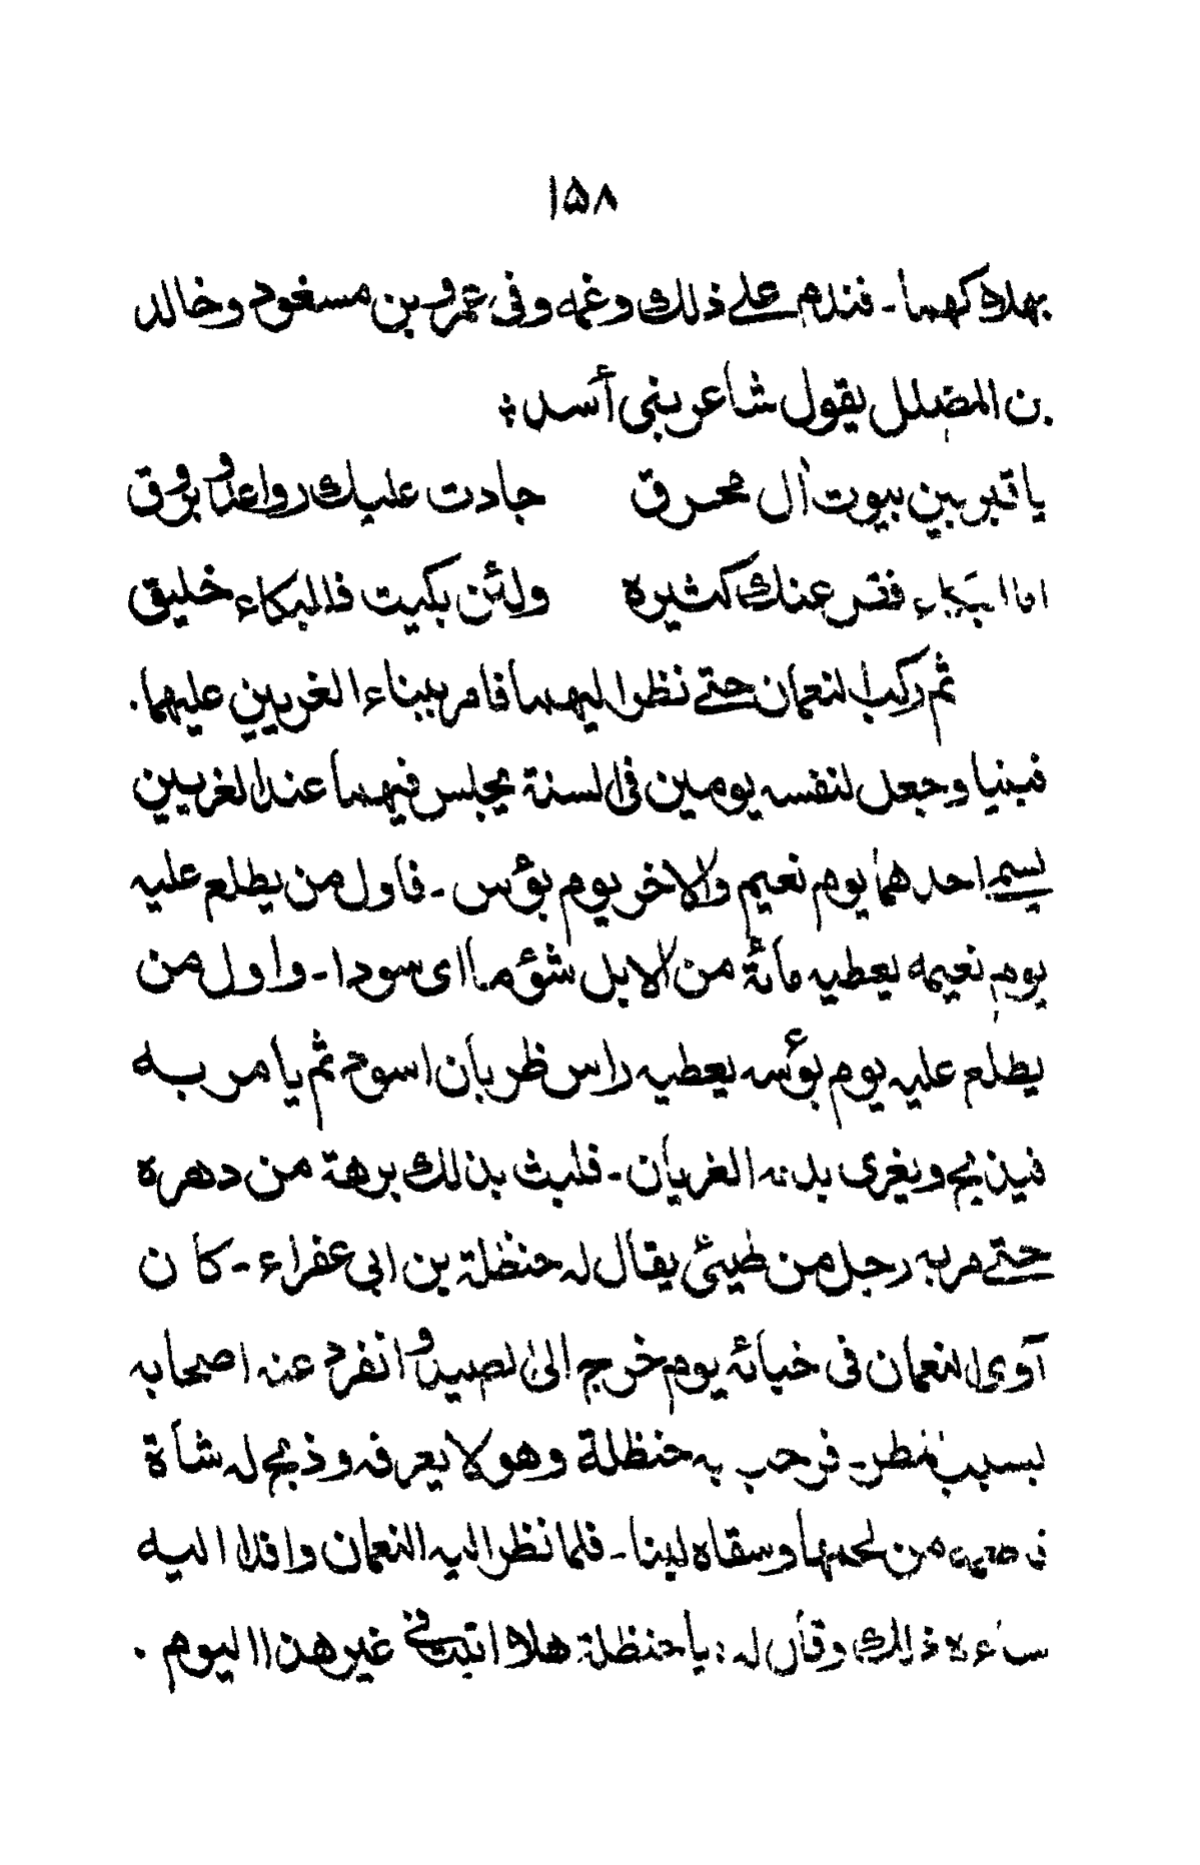 ١٥٨
بهلاكهما - فندم على ذلك وغمه وفى عمرو بن مسعود وخالد
بن المضلل يقول شاعر بنى أسد :
يا قبر بين بيوت آل محرق جادت عليك رواعد وبروق
اما البكاء فقر عنك كثيره ولئن بكيت فالبكاء خليق
ثم ركب النعمان حتى نظر اليهما فامر ببناء الغريين عليهما .
فبنيا وجعل لنفسه يومين فى السنة يجلس فيهما عند الغريين
يسمى احدهما يوم نعيم والاخر يوم بؤس - فاول من يطلع عليه
يوم نعيمه يعطيه مائة من الابل شؤما اى سودا - واول من
يطلع عليه يوم بؤسه يعطيه راس ظربان اسود ثم يامر به
فيذبح ويغرى بدمه الغريان - فلبث بذلك برهة من دهره
حتى مر به رجل من طيئ يقال له حنظلة بن ابى عفراء - كان
آوى النعمان فى خبائه يوم خرج الى الصيد وانفرد عنه اصحابه
بسبب المطر - فرحب به حنظلة وهو لا يعرفه وذبح له شاة
من لحمها وسقاه لبنا - فلما نظر اليه النعمان وافدا اليه
ساءه ذلك وقال له : يا حنظلة هلا اتيت فى غير هذا اليوم .